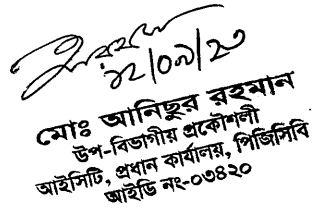 ১২/০৯/২৩
মোঃ আনিছুর রহমান
উপ-বিভাগীয় প্রকৌশলী
আইসিটি, প্রধান কার্যালয়, পিজিসিবি
আইডি নং-০৩৪২০